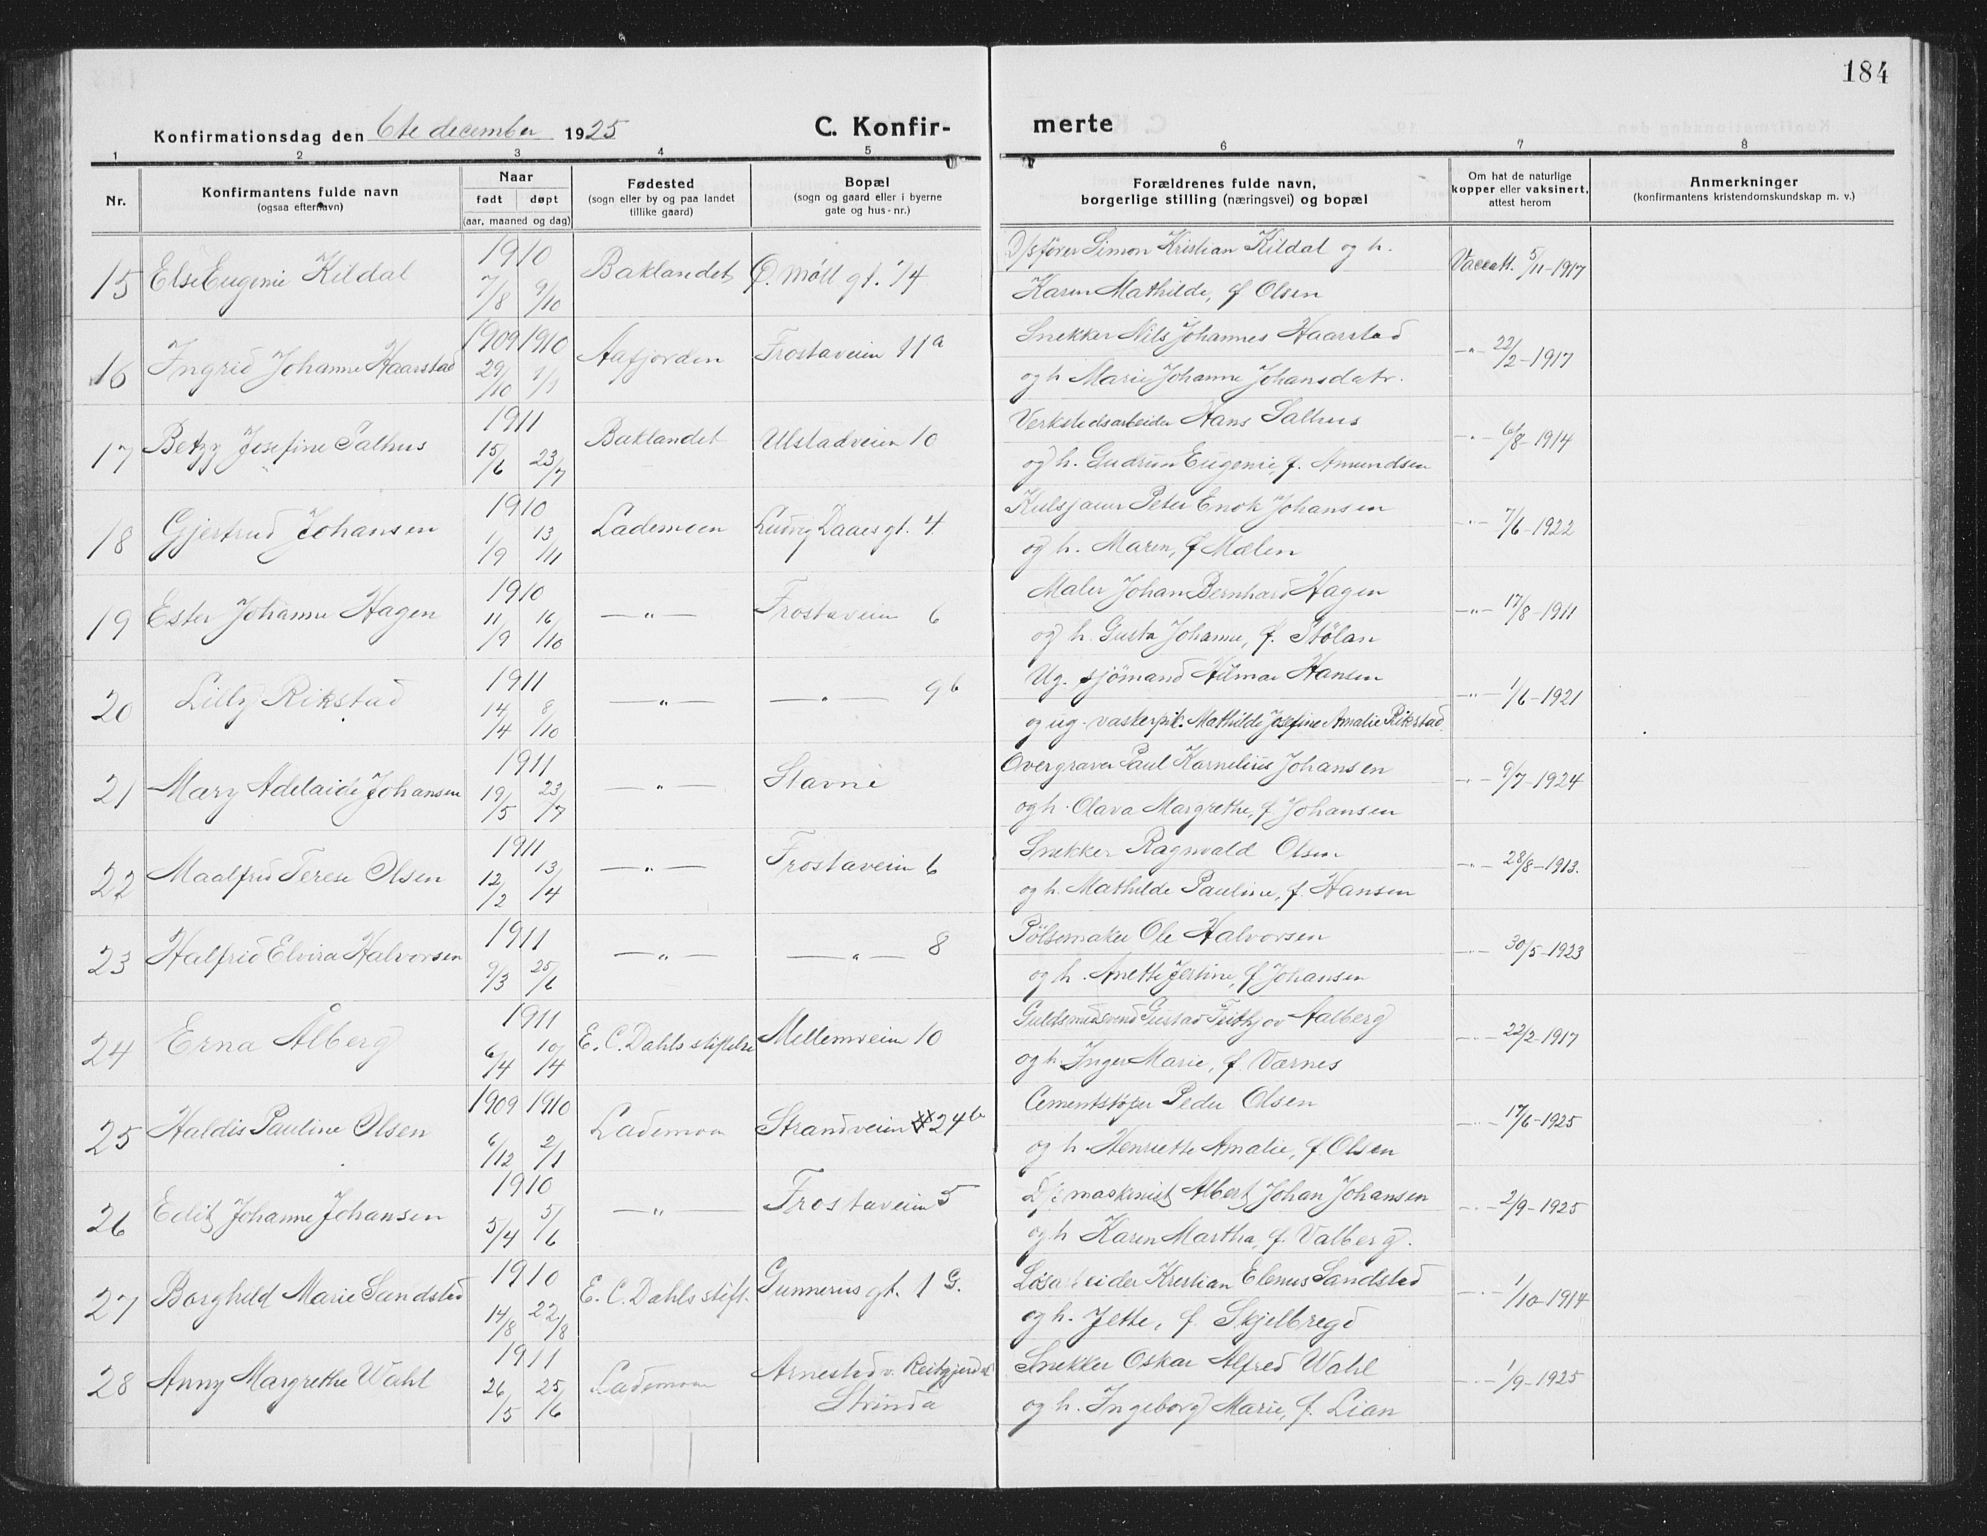 184
Konfirmationsdag den 6te december 1925 C. Konfir- merte
1 2 3 4 5 6 7 8
Nr. Konfirmantens fulde navn (ogsaa efternavn) Naar født døpt (aar, maaned og dag) Fødested (sogn eller by og paa landet tillike gaard) Bopæl (sogn og gaard eller i byerne gate og hus-nr.) Forældrenes fulde navn, borgerlige stilling (næringsvei) og bopæl Om hat de naturlige kopper eller vaksinert, attest herom Anmerkninger (konfirmantens kristendomskundskap m. v.)
15 Else Eugenie Kildal 1910 7/8 9/10 Baklandet Ø. Møll gt. 14 D/sfører Simon Kristian Kildal og h. Vaccatt. 5/11-1917
Karen Mathilde, f Olsen
16 Ingrid Johanne Haarstad 1909 1910 29/10 1/1 Aafjorden Frostaveien 11a Snekker Nils Johannes Haarstad -"- 22/2-1917
og h Marie Johanne Johansdatr.
17 Betzy Josefine Salhus 1911 15/6 23/7 Baklandet Ulstadveien 10 Verkstedsarbeider Hans Salhus -"- 6/8-1914
og h. Gudrun Eugenie, f. Amundsen
18 Gjertrud Johansen 1910 1/9 13/11 Lademoen Ludvig Daaes gt. 4 Kulsjauer Peter Enok Johansen -"- 7/6-1922
og h. Maren, f Mælen
19 Ester Johanne Hagen 1910 11/9 16/10 -"- Frostaveien 6 Maler Johan Bernhard Hagen -"- 17/8-1911
og h. Gusta Johanne, f. Stølan
20 Lilly Rikstad 1911 14/4 8/10 -"- -"- 9b Ug. sjömand Hilmar Hansen -"- 1/6-1921
og ug. vaskerpik. Mathilde Josefine Amalie Rikstad
21 Mary Adelaide Johansen 1911 19/5 23/7 -"- Stavne Overgraver Paul Kornelius Johansen -"- 9/7-1924
og h. Olava Margrethe, f Johansen
22 Maalfrid Terese Olsen 1911 12/2 13/4 -"- Frostaveien 6 Snekker Ragnvald Olsen -"- 28/8-1913.
og h. Mathilde Pauline, f. Hansen
23 Halfrid Elvira Halvorsen 1911 9/3 25/6 -"- -"- 8 Pölsemaker Ole Halvorsen -"- 30/5-1923
og h. Anette Jestine, f Johansen
24 Erna Ålberg 1911 6/4 10/4 E. C. Dahls stiftelse Mellemveien 10 Guldsmedsvend Gustav Frithjov Aalberg -"- 22/2-1917
og h. Inger Marie, f. Værnes
25 Haldis Pauline Olsen 1909 1910 6/12 2/1 Lademoen Strandveien 24b Cementstøper Peder Olsen -"- 17/6-1925
og h. Henriette Amalie, f Olsen
26 Edit Johanne Johansen 1910 5/4 5/6 -"- Frostaveien 5 D/s maskinist Albert Johan Johansen -"- 2/9-1925
og h Karen Martha, f. Valberg.
27 Borghild Marie Sandstad 1910 14/8 22/8 E. C. Dahls stift. Gunnerus gt. 1 G. Løsarbeider Krestian Elenus Sandstad -"- 1/10-1914
og h. Jette, f Skjelbred
28 Anny Margrethe Wahl 1911 26/5 25/6 Lademoen Arnestad v. Reitgjerdet Strinda Snekker Oskar Alfred Wahl -"- 1/9-1925
og h. Ingeborg Marie, f. Lian